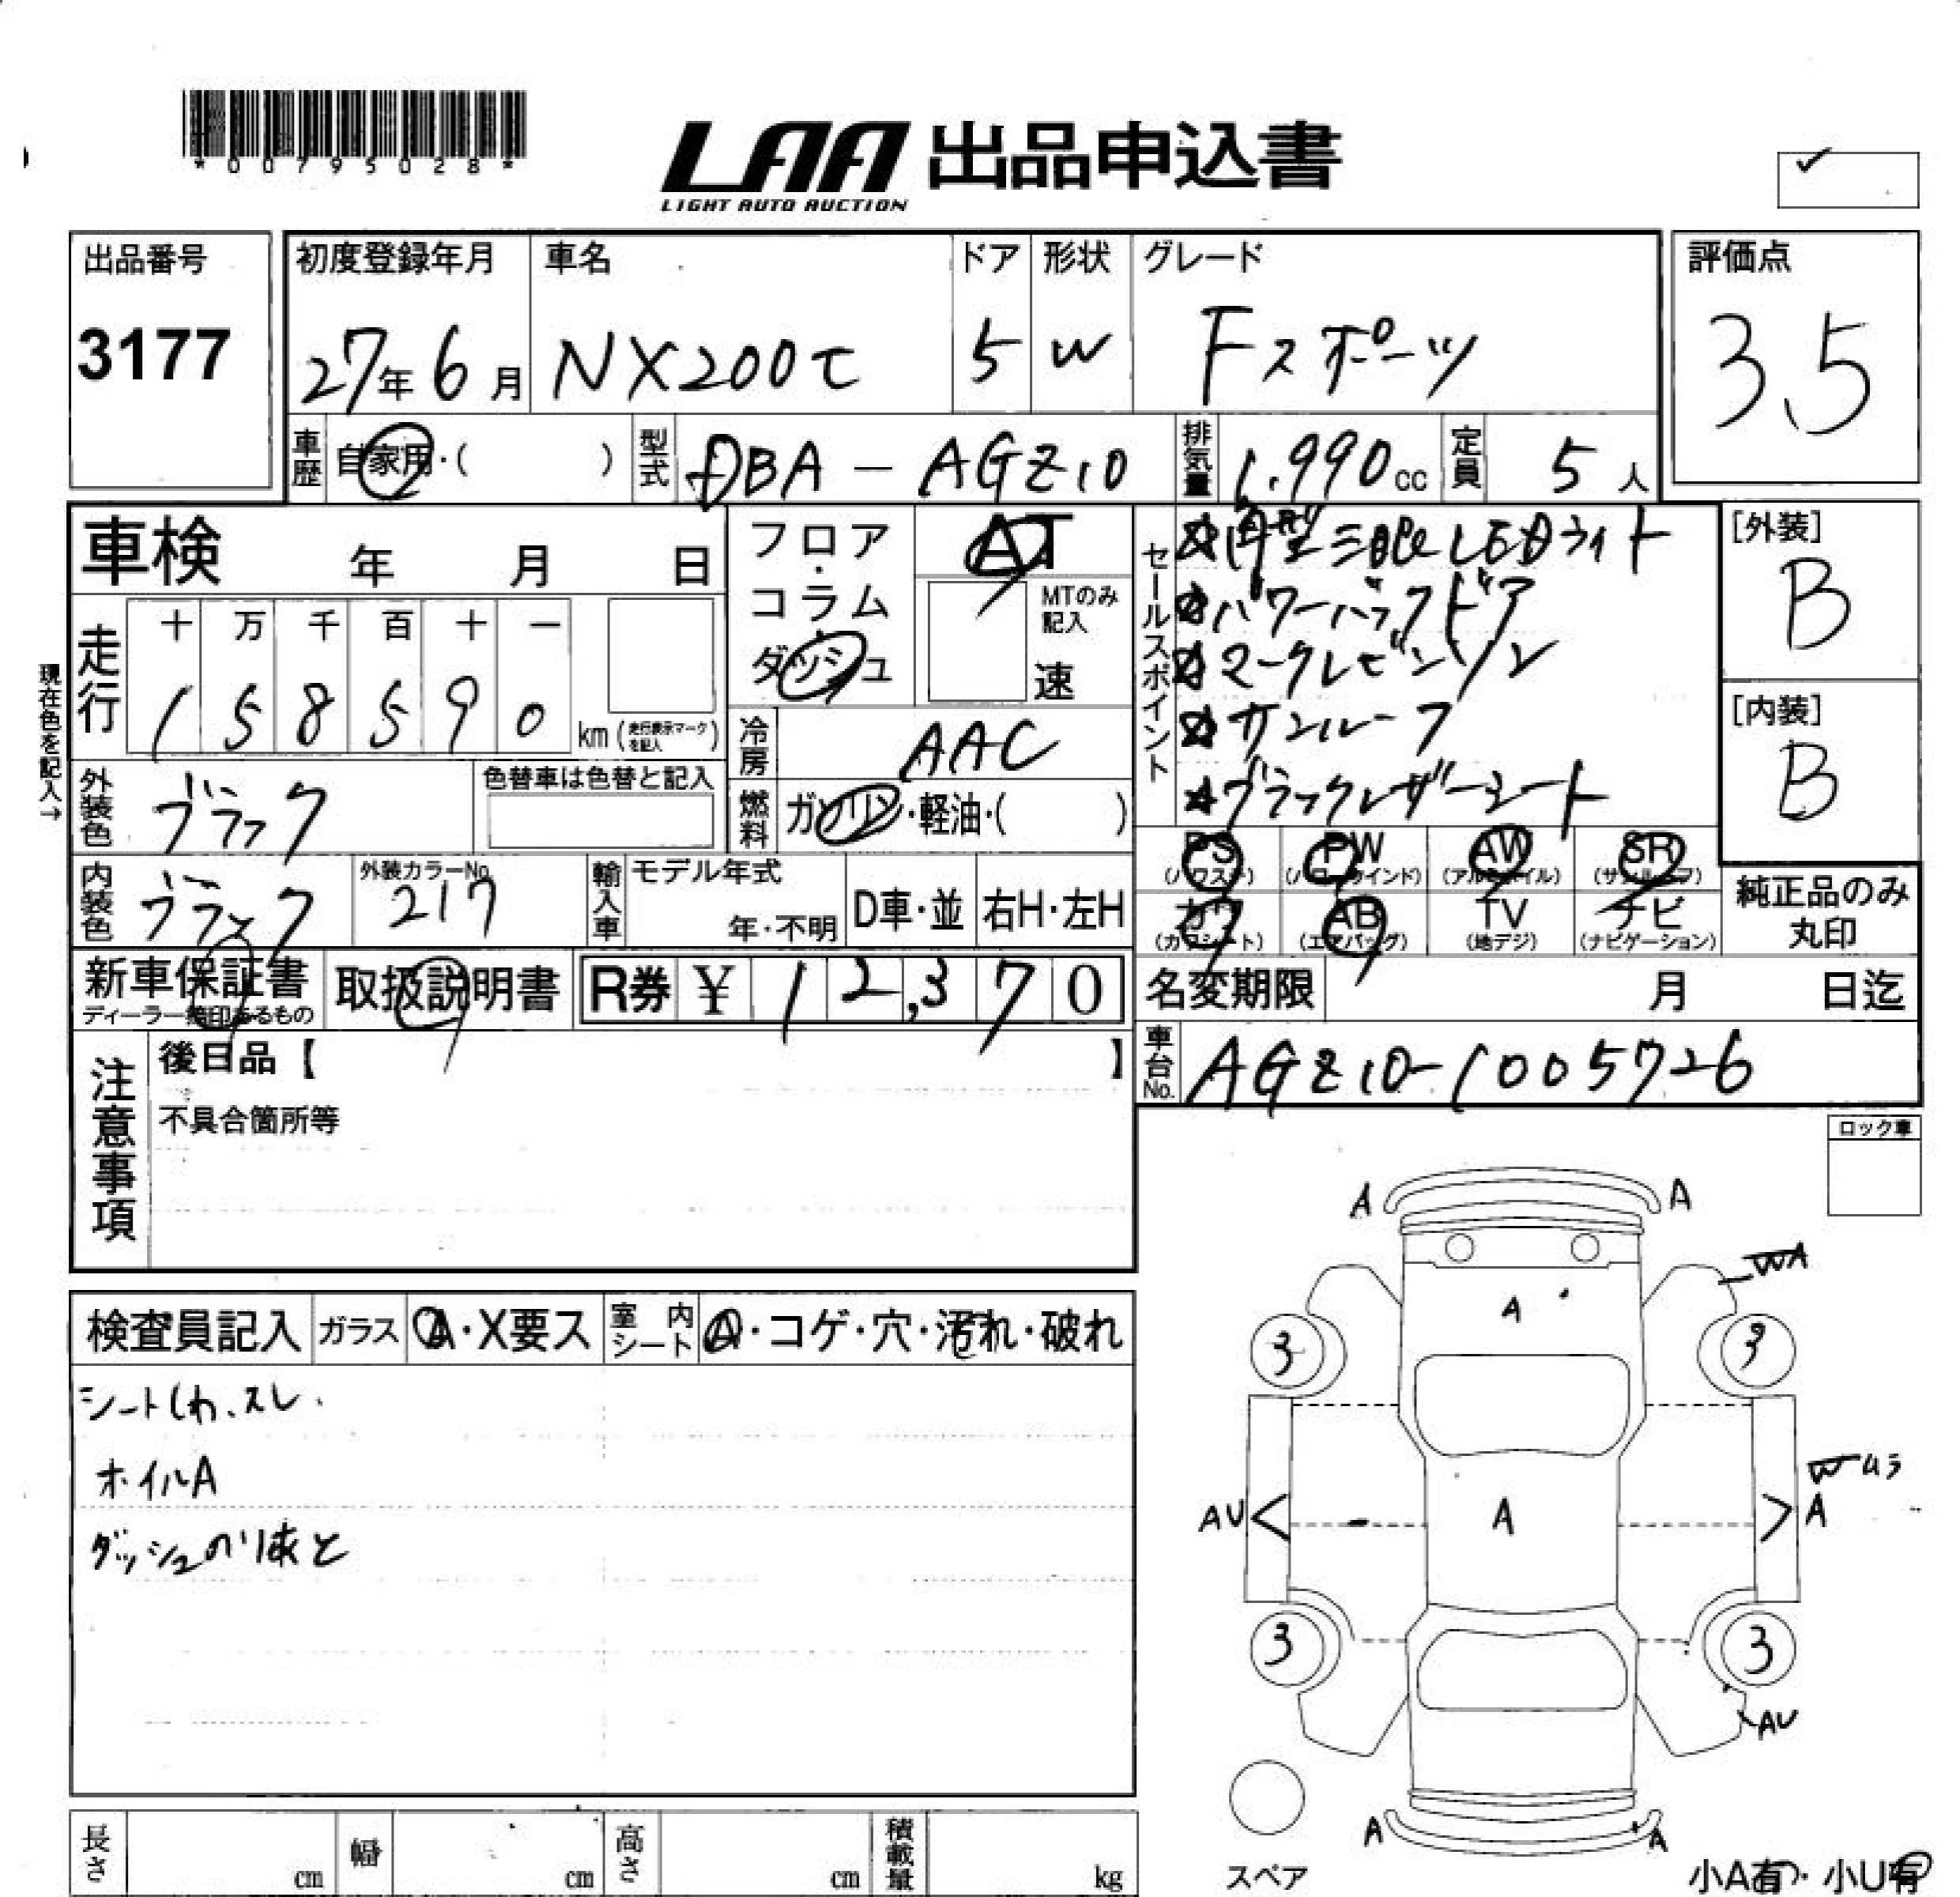 *00795028*
LAA 出品申込書
LIGHT AUTO AUCTION
出品番号
3177
初度登録年月
27年6月
車名
NX200t
ドア
5
形状
W
グレード
Fスポーツ
評価点
3.5
車歴
自家用・( )
型式
DBA-AGZ10
排気量
1,990cc
定員
5人
車検 年 月 日
走行
十 万 千 百 十 一
1 5 8 5 9 0
km(走行表示マークを記入)
現在色を記入→
フロア・コラム
ダッシュ
AT
MTのみ記入
速
冷房
AAC
燃料
ガソリン・軽油・( )
セールスポイント
☆角型三眼LEDライト
☆パワーバックドア
☆マークレビンソン
☆サンルーフ
☆ブラックレザーシート
[外装]
B
[内装]
B
外装色
ブラック
色替車は色替と記入
内装色
ブラック
外装カラーNo.
217
輸入車
モデル年式
年・不明
D車・並
右H・左H
PS
(パワステ)
PW
(パワーウインド)
AW
(アルミホイル)
SR
(サンルーフ)
カワ
(カワシート)
AB
(エアバッグ)
TV
(地デジ)
ナビ
(ナビゲーション)
純正品のみ
丸印
新車保証書
ディーラー捺印あるもの
取扱説明書
R券 ¥ 12,370
名変期限 月 日迄
車台No.
AGZ10-1005726
注意事項
後日品【 】
不具合箇所等
ロック車
検査員記入
ガラス
A・X要ス
室内シート
A・コゲ・穴・汚れ・破れ
シートしわ、スレ.
ホイルA
ダッシュのり跡と
A A
WA
A
3 3
AU A A
3 3
AU
A A
スペア
小A有・小U有
長さ cm
幅 cm
高さ cm
積載量 kg